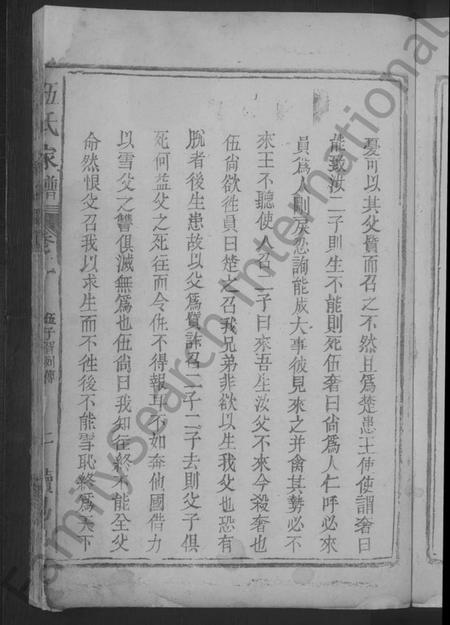 憂可以其父質而召之不然且爲楚患王使使謂奢曰
能致汝二子則生不能則死伍奢曰尚爲人仁呼必來
員爲人剛戾忍詢能成大事彼見來之并禽其勢必不
來王不聽使人召二子曰來吾生汝父不來今殺奢也
伍尚欲徃員曰楚之召我兄弟非欲以生我父也恐有
脫者後生患故以父爲質詐召二子二子去則父子俱
死何益父之死往而令仇不得報耳不如奔他國借力
以雪父之讐俱滅無爲也伍尚曰我知往終不能全父
命然恨父召我以求生而不徃後不能雪恥終爲天下
伍氏家譜
卷之一
伍子胥列傳
二
FamilySearch International